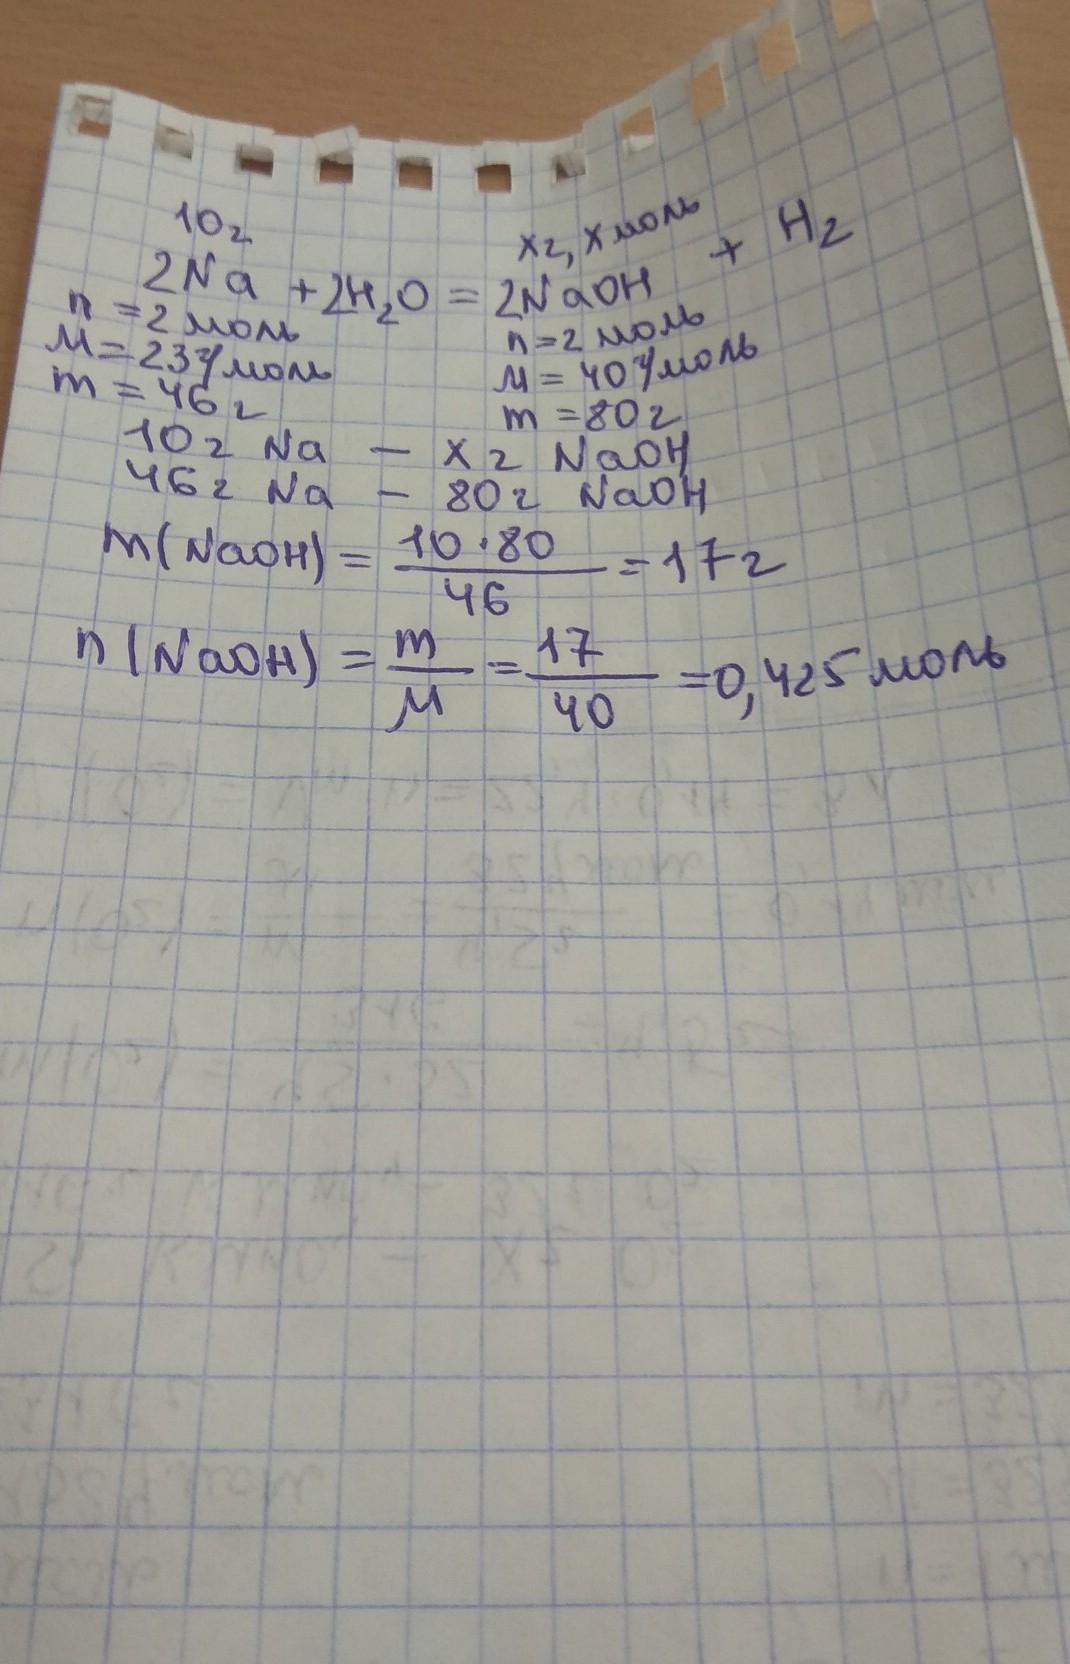 10г
хг, х моль
2Na + 2H₂O = 2NaOH + H₂
n = 2 моль
n = 2 моль
M = 23г/моль
M = 40г/моль
m = 46г
m = 80г
10г Na – хг NaOH
46г Na – 80г NaOH
m(NaOH) = 10·80/46 = 17г
n(NaOH) = m/M = 17/40 = 0,425 моль